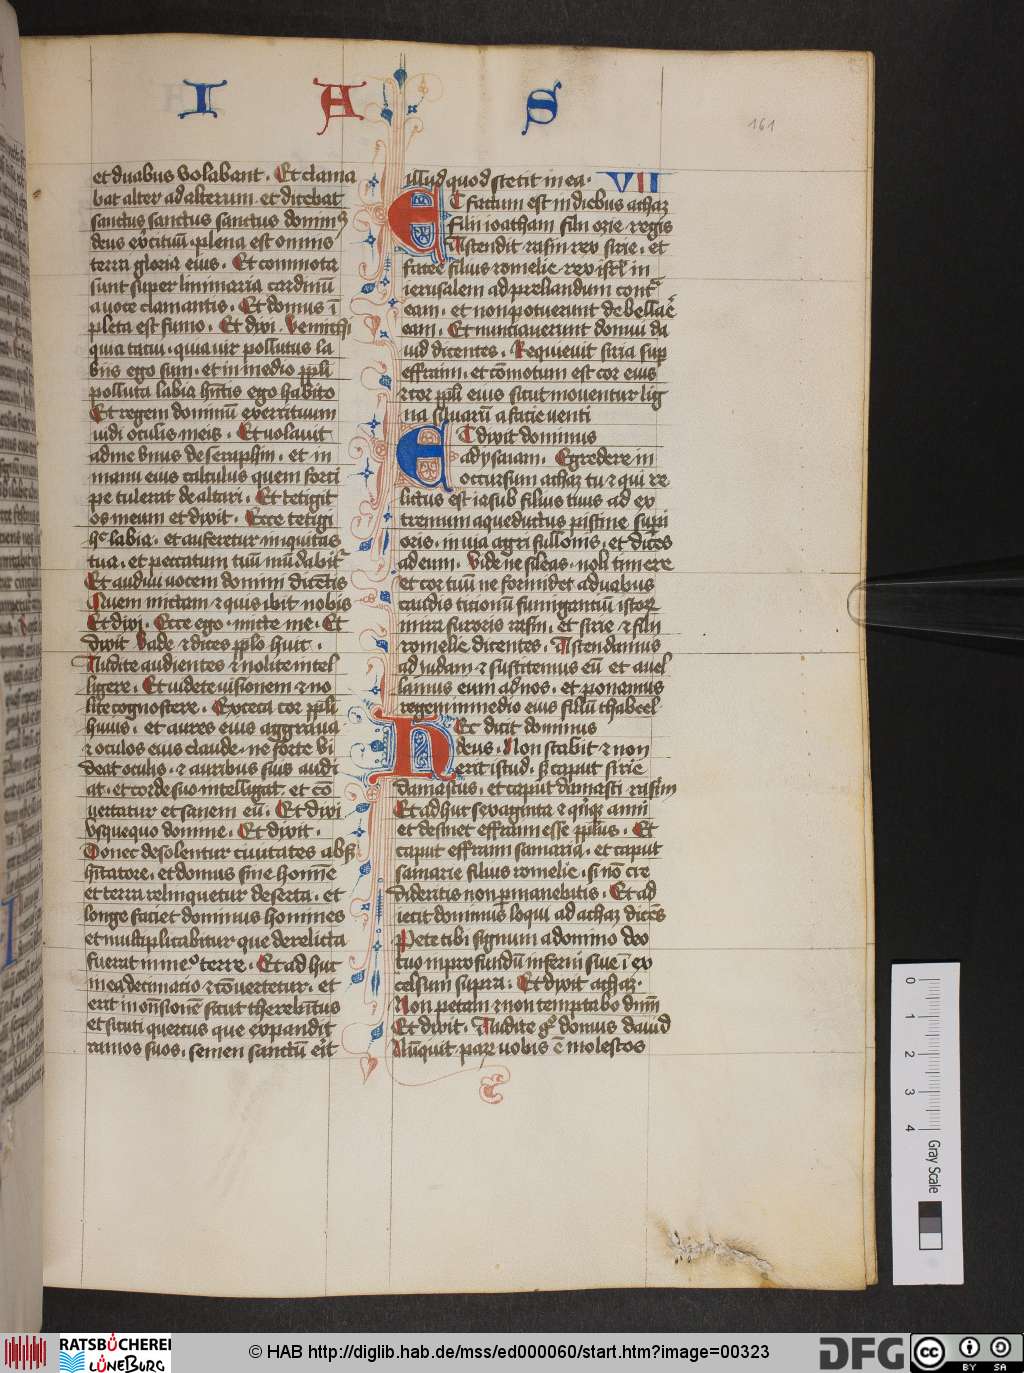 I A S
161
et duabus volabant . Et clama
bat alter ad alterum et dicebat
sanctus sanctus sanctus dominus
deus exercituū . plena est omnis
terra gloria eius . Et commota
sunt super liminaria cardinū
a voce clamantis . Et domus ī
pleta est fumo . Et dixi . Ve michi
quia tacui . quia vir pollutus la
biis ego sum . et in medio ppli
polluta labia hn̄tis ego habito
Et regem dominū exercituum
vidi oculis meis . Et volavit
ad me vnus de seraphin . et in
manu eius calculus quem forci
pe tulerat de altari . Et tetigit
os meum et dixit . Ecce tetigi
hc labia . et auferetur iniquitas
tua . et peccatum tuū mūdabit
Et audivi vocem domini dicētis
Quem mictam et quis ibit nobis
Et dixi . Ecce ego . micte me . Et
dixit Vade et dices pplo huic .
Audite audientes et nolite intel
ligere . Et videte visionem et no
lite cognoscere . Exceca cor ppli
huius . et aures eius aggrava
et oculos eius claude . ne forte vi
deat oculis . et auribus suis audi
at . et corde suo intelligat et cō
vertatur et sanem eū . Et dixi
vsquequo domine . Et dixit .
Donec desolentur civitates absq
hītatore . et domus sine homīe
et terra relinquetur deserta . et
longe faciet dominus homines
et multiplicabitur que derelicta
fuerat in meo terre . Et ad huc
in ea decimatio et cōvertetur . et
erit in on̄sionē sicut therebīntus
et sicuti quercus que expandit
ramos suos . semen sanctū erit
illud quod stetit in ea . VII
ET factum est in diebus achaz
filii ioatham filii ozie regis
Ascendit rasin rex sirie . et
facee filius romelie rex isrl in
ierusalem ad preliandum contra
eam . et non potuerunt debellare
eam . Et nunciaverunt domui da
vid dicentes . Requievit siria sup
effraim . et cōmotum est cor eius
et cor ppli eius sicut moventur lig
na silvarū a facie venti
ET dixit dominus
ad ysaiam . Egredere in
occursum achaz tu et qui re
lictus est iasub filius tuus ad ex
tremum aqueductus piscine supi
oris . in via agri fullonis . et dices
ad eum . Vide ne sileas . noli timere
et cor tuū ne formidet a duabus
caudis titionū fumigantiū istorum
in ira furoris rasin . et sirie et filii
romelie dicentes . Ascendamus
ad iudam et suscitemus eū et avel
lamus eum ad nos . et ponamus
regem in medio eius filiū thabeel
Hec dicit dominus
deus . Non stabit et non
erit istud . sed caput sirie
damascus . et caput damasci rasim
Et ad huc sexaginta et quinque anni
et desinet effraim esse pplus . Et
caput effraim samaria . et caput
samarie filius romelie . si nō cre
dideritis non permanebitis . Et ad
iecit dominus loqui ad achaz dicēs
Pete tibi signum a domino deo
tuo in profundū inferni sive ī ex
celsum supra . Et dixit achaz .
Non petam et non temptabo dnm
Et dixit . Audite go domus david
Nūquit parum vobis ē molestos
0 1 2 3 4
Gray Scale
RATSBÜCHEREI
LÜNEBURG
© HAB http://diglib.hab.de/mss/ed000060/start.htm?image=00323
DFG
cc BY SA